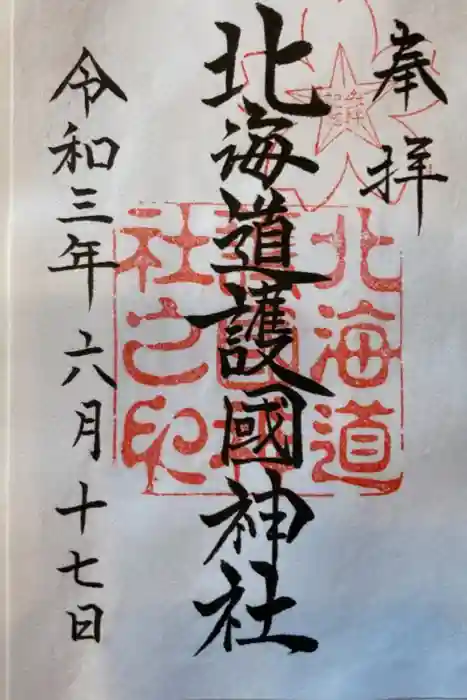 奉拝
北海道護國神社
令和三年六月十七日
北海道
護國神
社之印